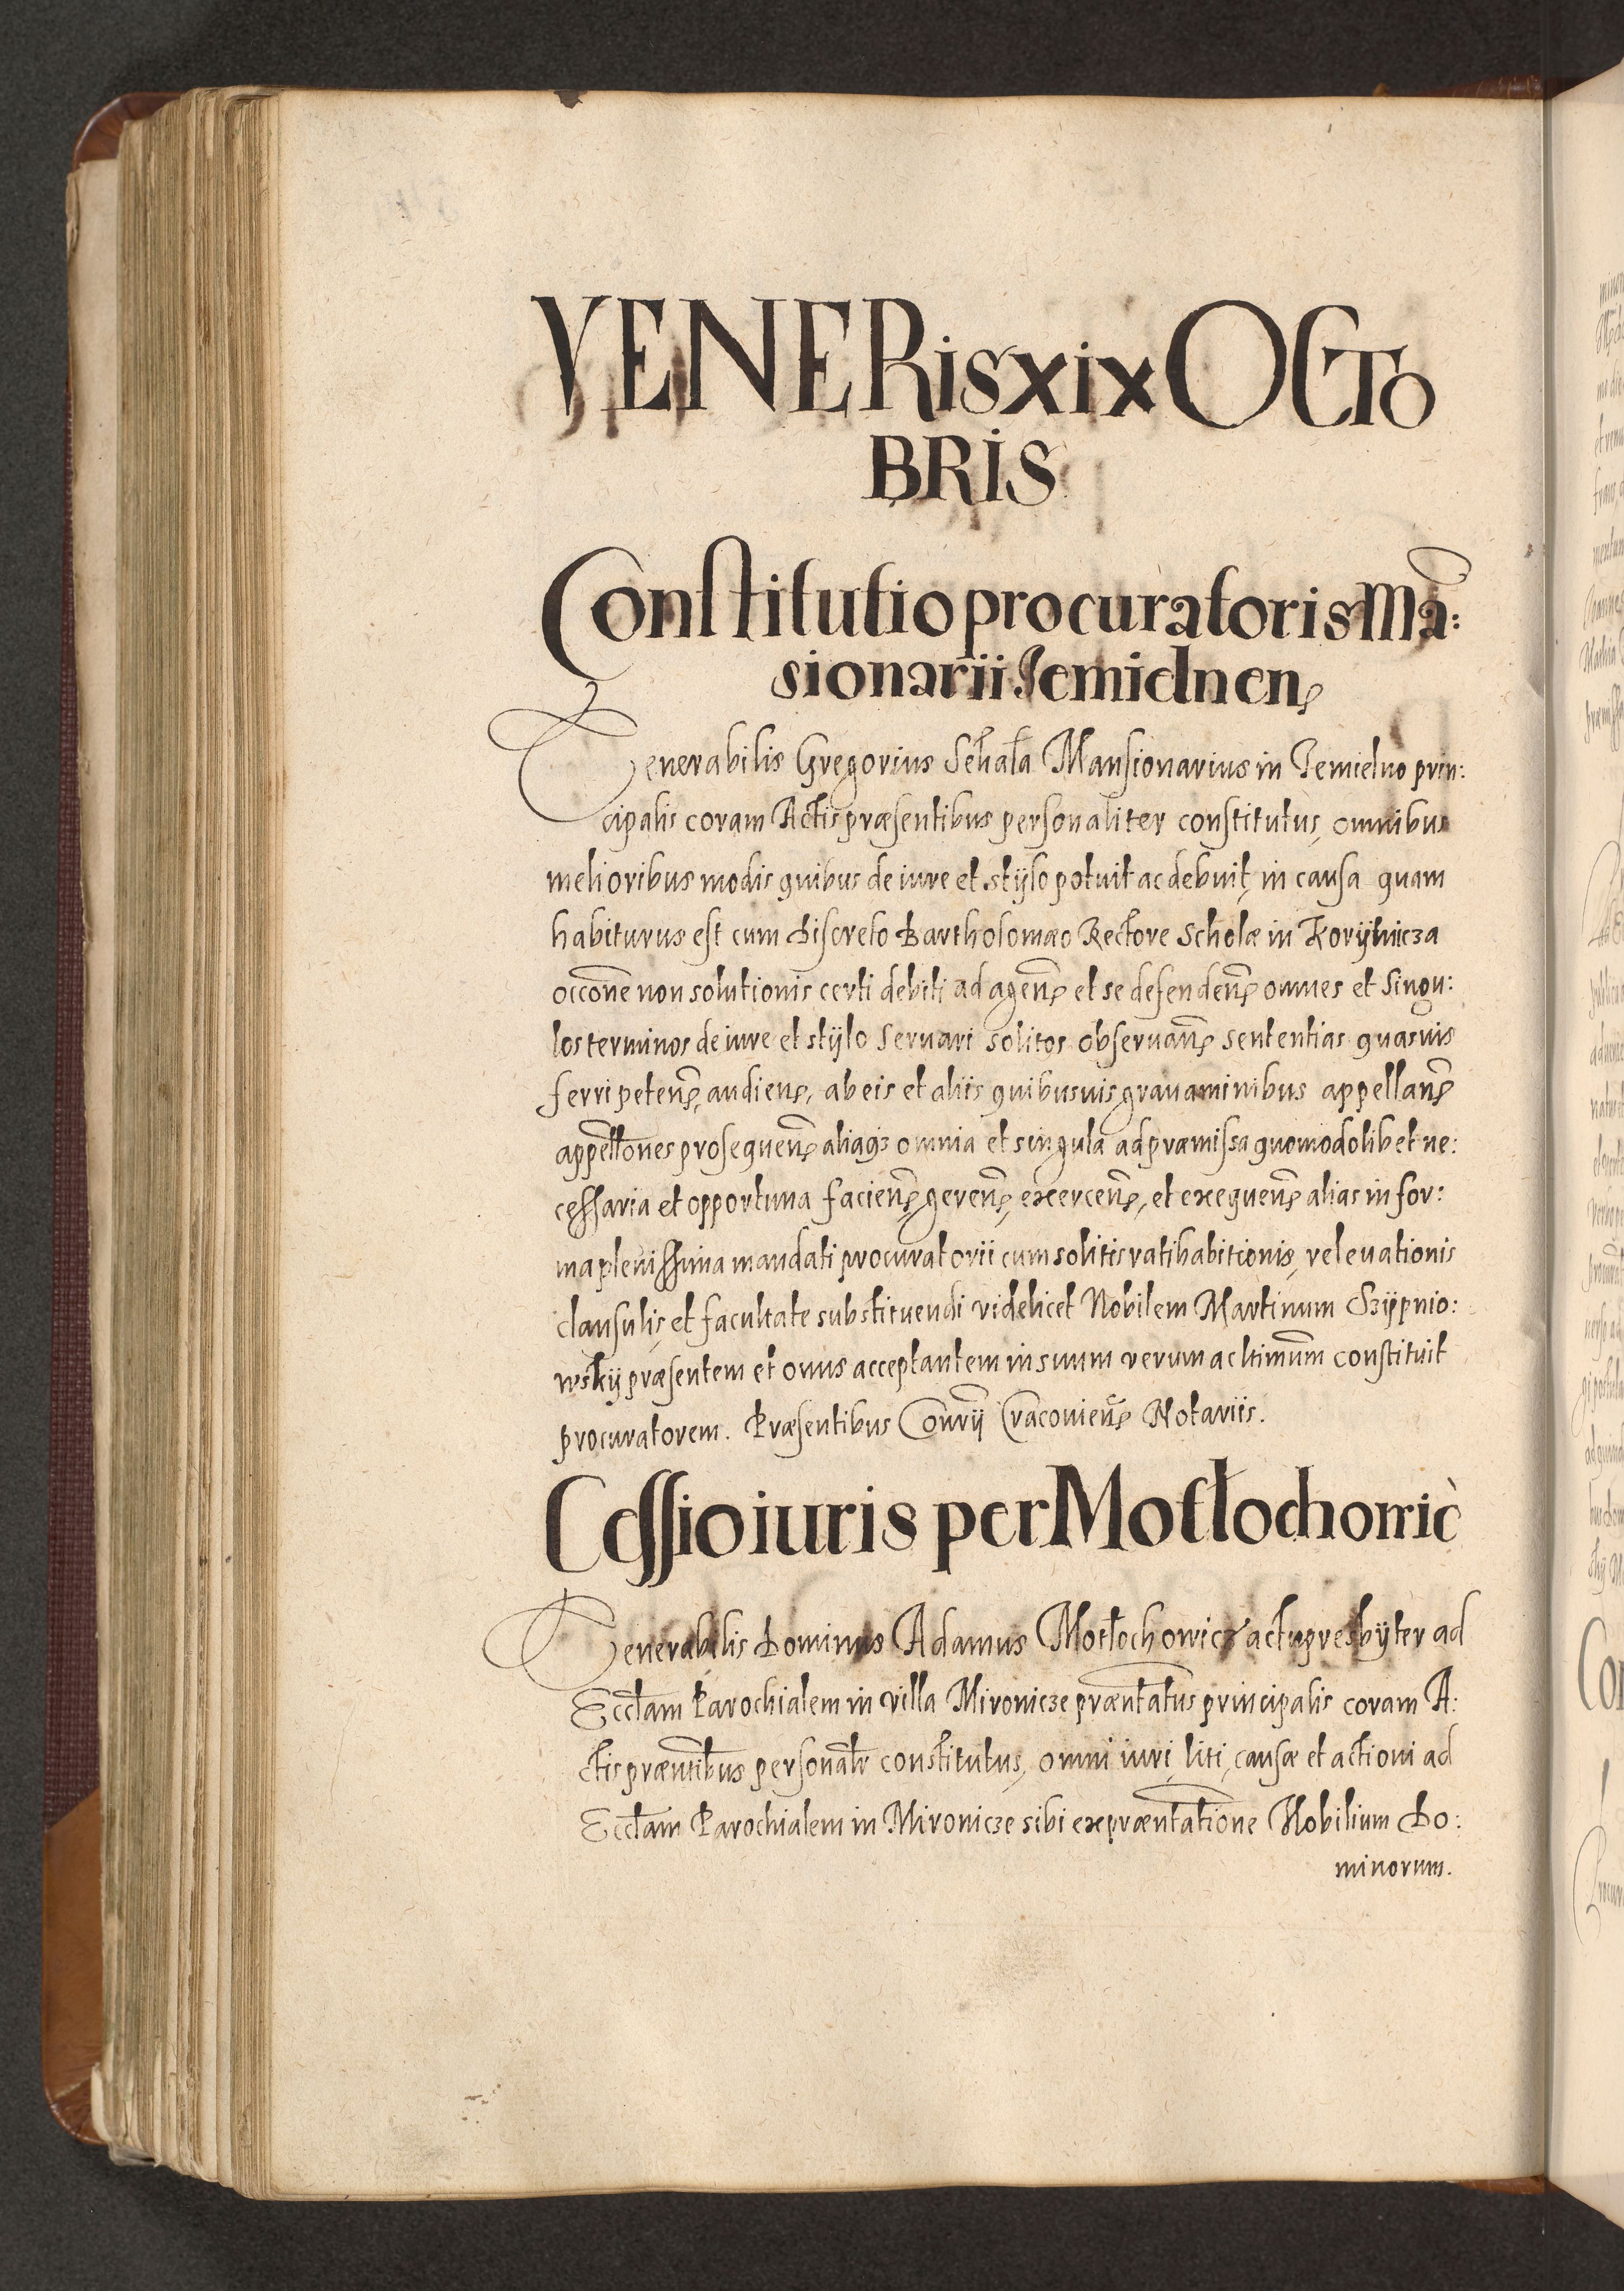 VENERis xix OCTO
BRIS
Constitutio procuratoris Mā:
sionarii Jemielnen
Venerabilis Gregorius Mansionarius in Jemielno prin:
cipalis coram Actis præsentibus personaliter constitutus, omnibus
melioribus modis quibus de iure et stÿlo potuit ac debuit, in causa quam
habiturus est cum Discreto Bartholomæo Rectore Scholæ in Korÿtnicza
occōne non solutionis certi debiti ad agen̄ et se defenden̄ omnes et singu:
los terminos de iure et stÿlo servari solitos observan̄ sententias quasvis
ferri peten̄, audien, ab eis et aliis quibusvis gravaminibus appellan̄
appellōnes prosequen̄ aliaqз omnia et singula ad præmissa quomodolibet ne:
cessaria et opportuna facien̄, geren̄, exercen̄, et exequen̄ alias in for:
ma plenissima mandati procuratorii cum solitis ratihabitionis, relevationis
clausulis, et facultate substituendi videlicet Nobilem Martinum Szÿpnio:
wskÿ præsentem et onus acceptantem in suum verum ac ltimūm constituit
procuratorem. Præsentibus Con̄rÿ Cracovien̄ Notariis.
Cessio iuris per Motłochowic̀
Venerabilis Dominus Adamus Motłochowicz actu presbÿter ad
Eccłam Parochialem in villa Mironicze præn̄tatus principalis coram A:
ctis præn̄tibus personałr constitutus, omni iuri, liti, causæ et actioni ad
Eccłam Parochialem in Mironicze sibi ex præn̄tatione Nobilium Do:
minorum.